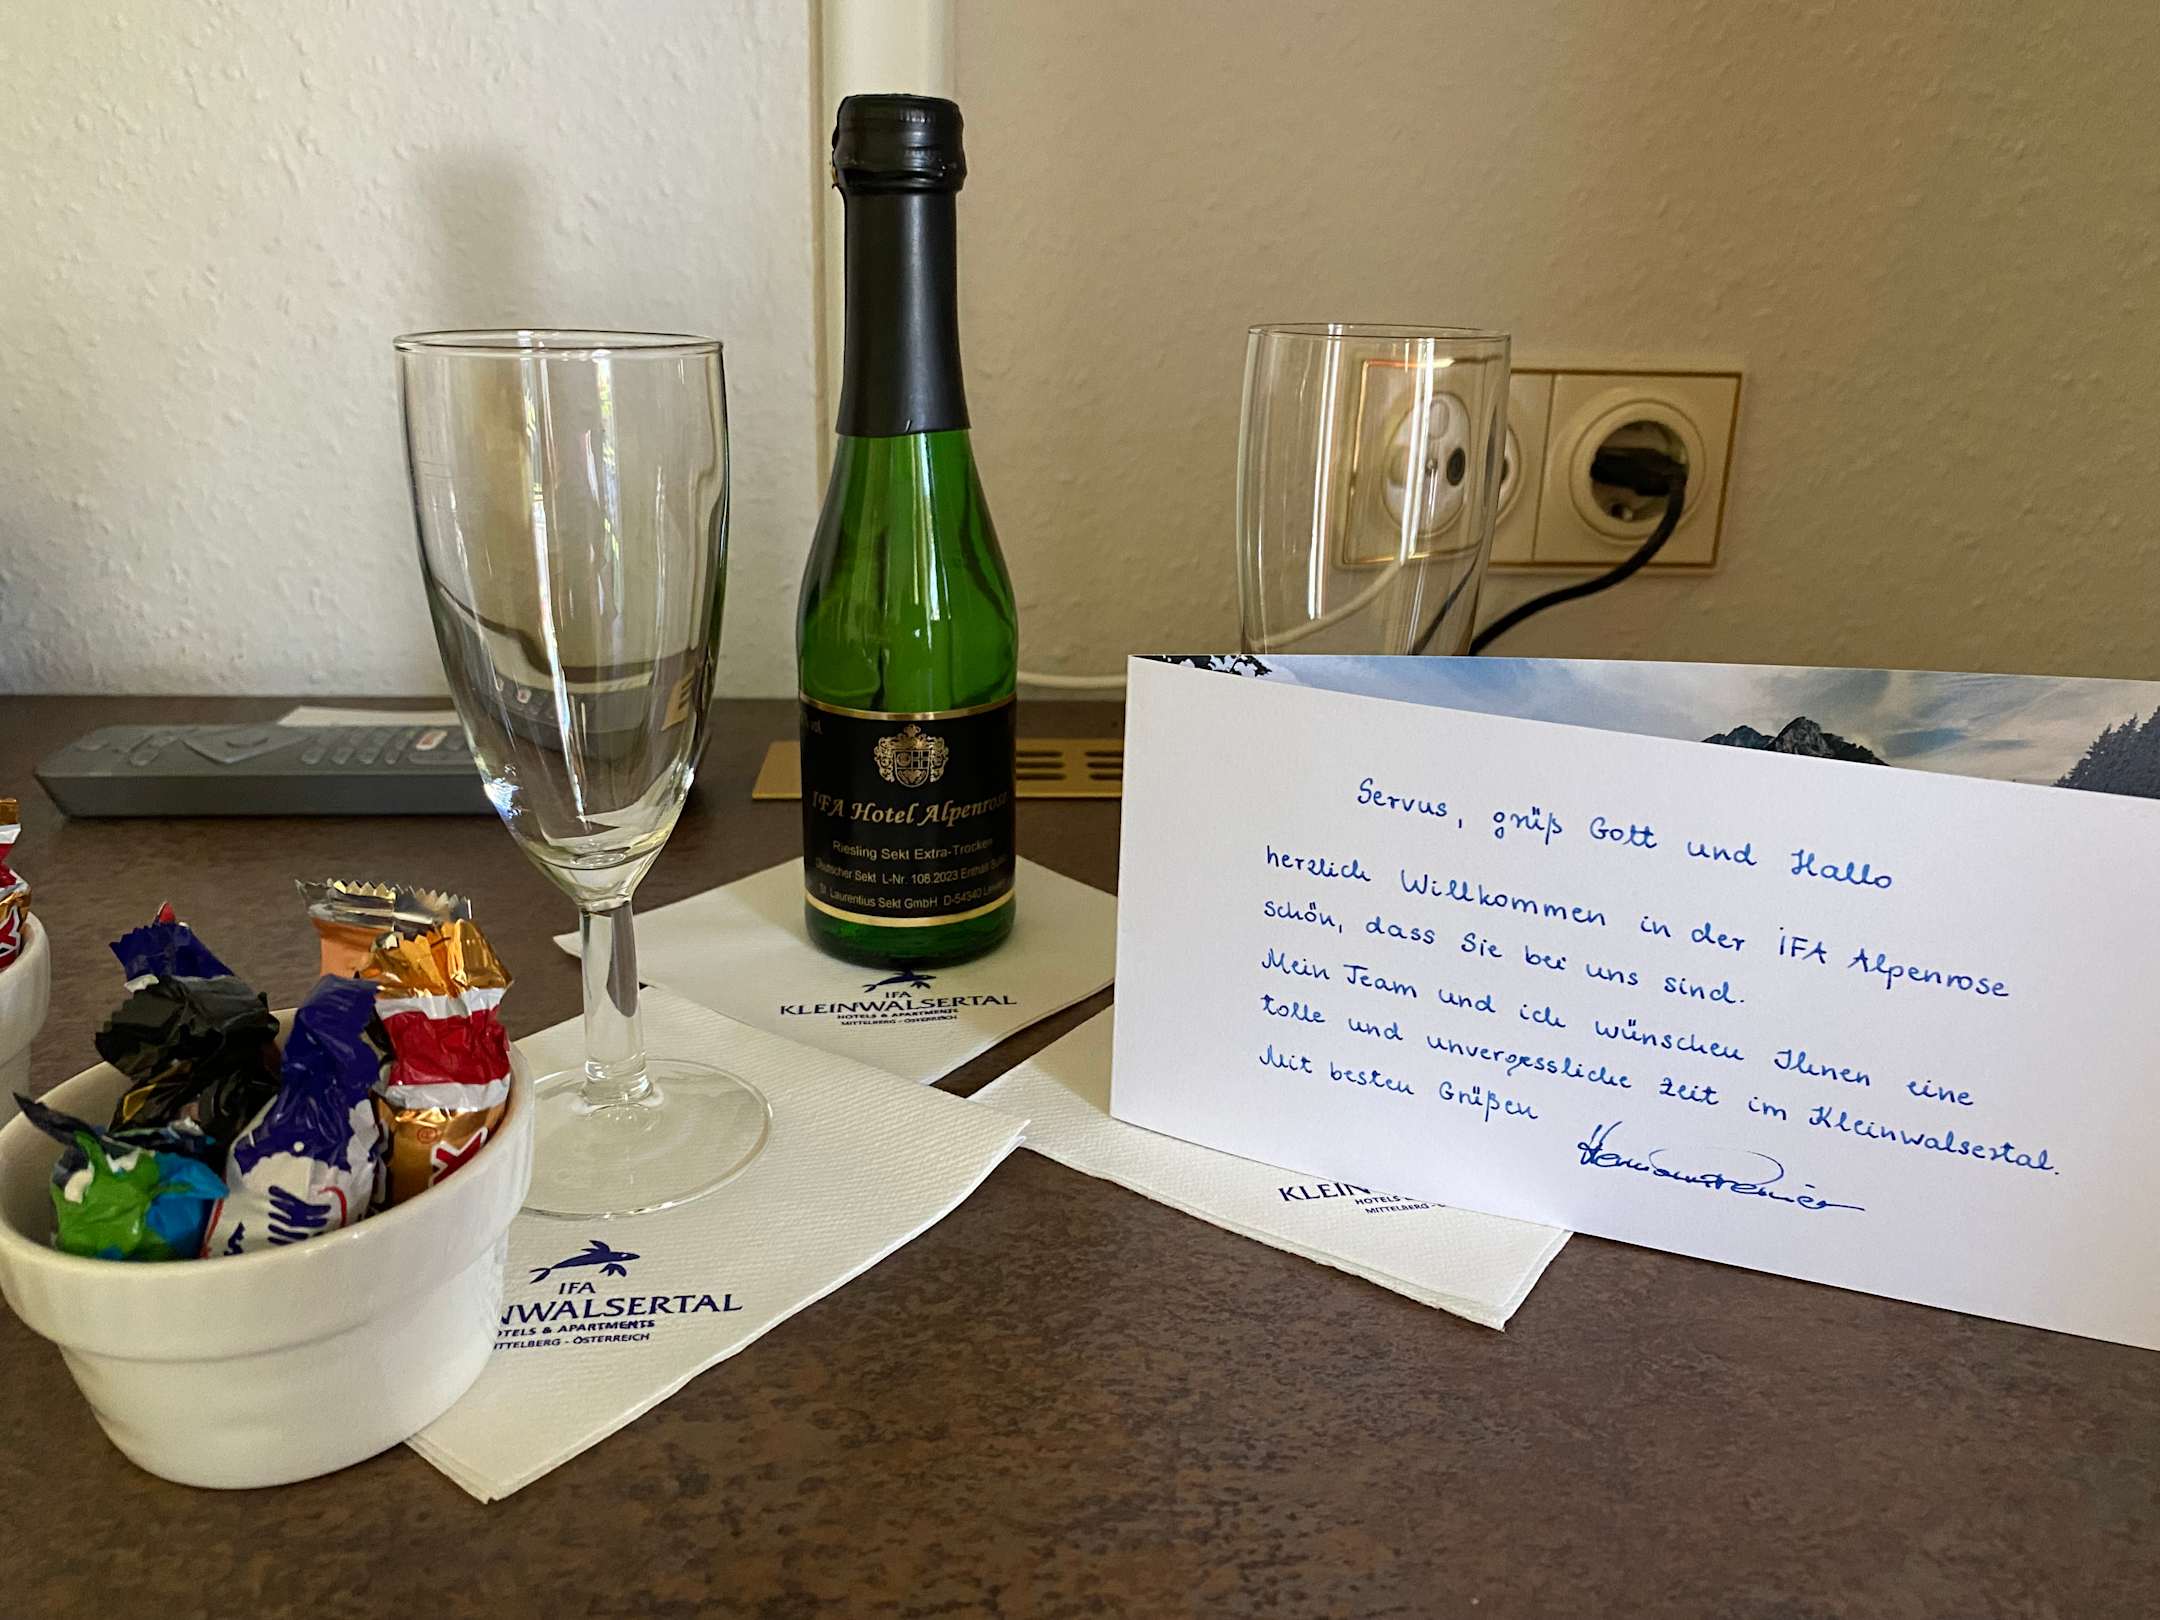 IFA Hotel Alpenrose
Riesling Sekt Extra-Trocken
Deutscher Sekt L-Nr. 108.2023 Enthält
St. Laurentius Sekt GmbH D-54340
IFA
KLEINWALSERTAL
HOTELS & APARTMENTS
MITTELBERG - ÖSTERREICH
Servus, grüß Gott und Hallo
herzlich Willkommen in der iFA Alpenrose
schön, dass Sie bei uns sind.
Mein Team und ich wünschen Ihnen eine
tolle und unvergessliche Zeit im Kleinwalsertal.
Mit besten Grüßen
KLEIN
HOTELS
MITTELBERG -
IFA
NWALSERTAL
OTELS & APARTMENTS
ITTELBERG - ÖSTERREICH